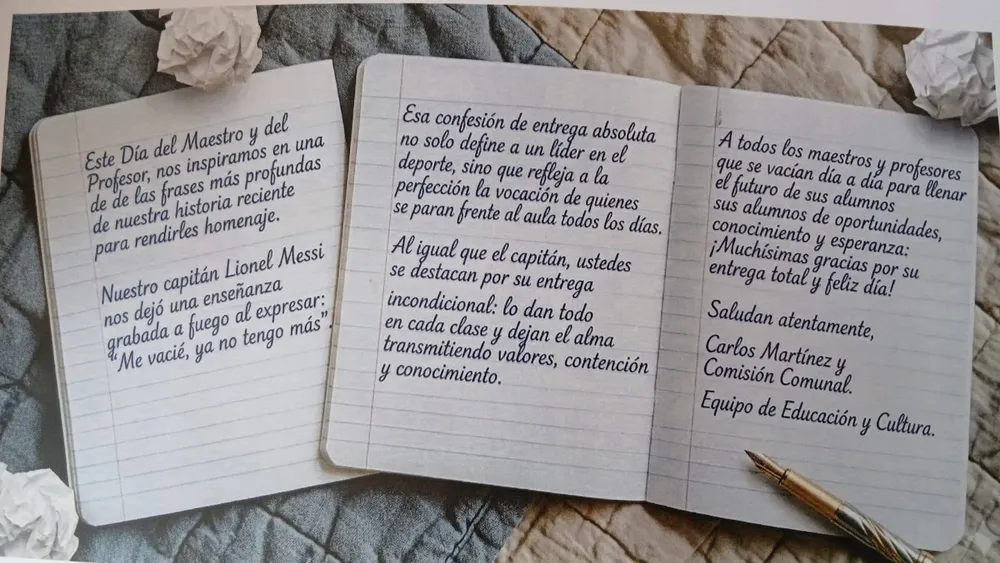 Este Día del Maestro y del
Profesor, nos inspiramos en una
de de las frases más profundas
de nuestra historia reciente
para rendirles homenaje.
Nuestro capitán Lionel Messi
nos dejó una enseñanza
grabada a fuego al expresar:
“Me vacié, ya no tengo más”.
Esa confesión de entrega absoluta
no solo define a un líder en el
deporte, sino que refleja a la
perfección la vocación de quienes
se paran frente al aula todos los días.
Al igual que el capitán, ustedes
se destacan por su entrega
incondicional: lo dan todo
en cada clase y dejan el alma
transmitiendo valores, contención
y conocimiento.
A todos los maestros y profesores
que se vacían día a día para llenar
el futuro de sus alumnos
sus alumnos de oportunidades,
conocimiento y esperanza:
¡Muchísimas gracias por su
entrega total y feliz día!
Saludan atentamente,
Carlos Martínez y
Comisión Comunal.
Equipo de Educación y Cultura.